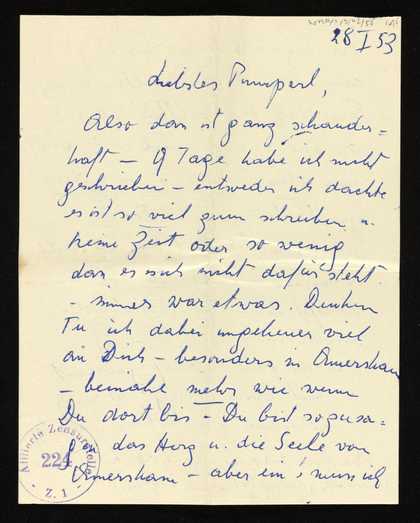 28 I 53
Liebstes Pumperl,
Also das ist ganz schauder=
haft — 9 Tage habe ich nicht
geschrieben — entweder ich dachte
es ist so viel zum schreiben u.
keine Zeit oder so wenig
dass es sich nicht dafür steht.
— immer war etwas. Denken
Tu ich dabei ungeheuer viel
an Dich — besonders in Amersham
— beinahe mehr wie wenn
Du dort bis — Du bist sozusa=
das Herz u. die Seele von
Amersham — aber ein's muss ich
Alliierte Zensurstelle
224
Z. 1